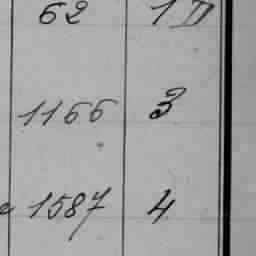 62 1D
1166 3
1587 4